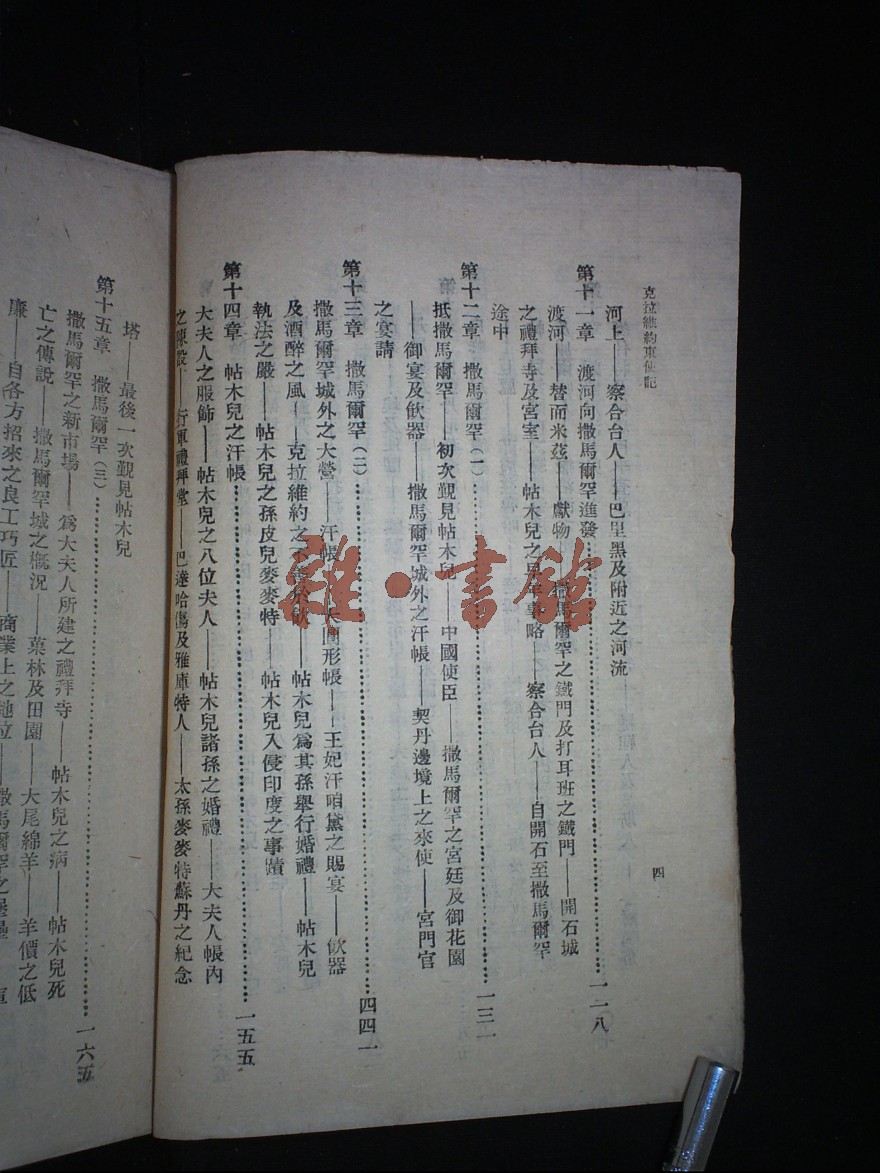 克拉維約東使記
四
河上——察合台人——巴里黑及附近之河流
第十一章　渡河向撒馬爾罕進發……一二八
渡河——替而米茲——獻物——撒馬爾罕之鐵門及打耳班之鐵門——開石城
之禮拜寺及宮室——帖木兒之早年事略——察合台人——自開石至撒馬爾罕
途中
第十二章　撒馬爾罕(一)……一三一
抵撒馬爾罕——初次覲見帖木兒——中國使臣——撒馬爾罕之宮廷及御花園
——御宴及飲器——撒馬爾罕城外之汗帳——契丹邊境上之來使——宮門官
之宴請
第十三章　撒馬爾罕(二)……四四一
撒馬爾罕城外之大營——汗帳——大圓形帳——王妃汗咱黛之賜宴——飲器
及酒醉之風——克拉維約之不善於飲——帖木兒爲其孫舉行婚禮——帖木兒
執法之嚴——帖木兒之孫皮兒麥麥特——帖木兒入侵印度之事蹟
第十四章　帖木兒之汗帳……一五五
大夫人之服飾——帖木兒之八位夫人——帖木兒諸孫之婚禮——大夫人帳內
之陳設——行軍禮拜堂——巴達哈傷及雅庫特人——太孫麥麥特蘇丹之紀念
塔——最後一次覲見帖木兒
第十五章　撒馬爾罕(三)……一六五
撒馬爾罕之新市場——爲大夫人所建之禮拜寺——帖木兒之病——帖木兒死
亡之傳說——撒馬爾罕城之概況——菓林及田園——大尾綿羊——羊價之低
廉——自各方招來之良工巧匠——商業上之地位——撒馬爾罕之堡壘
雜·書館